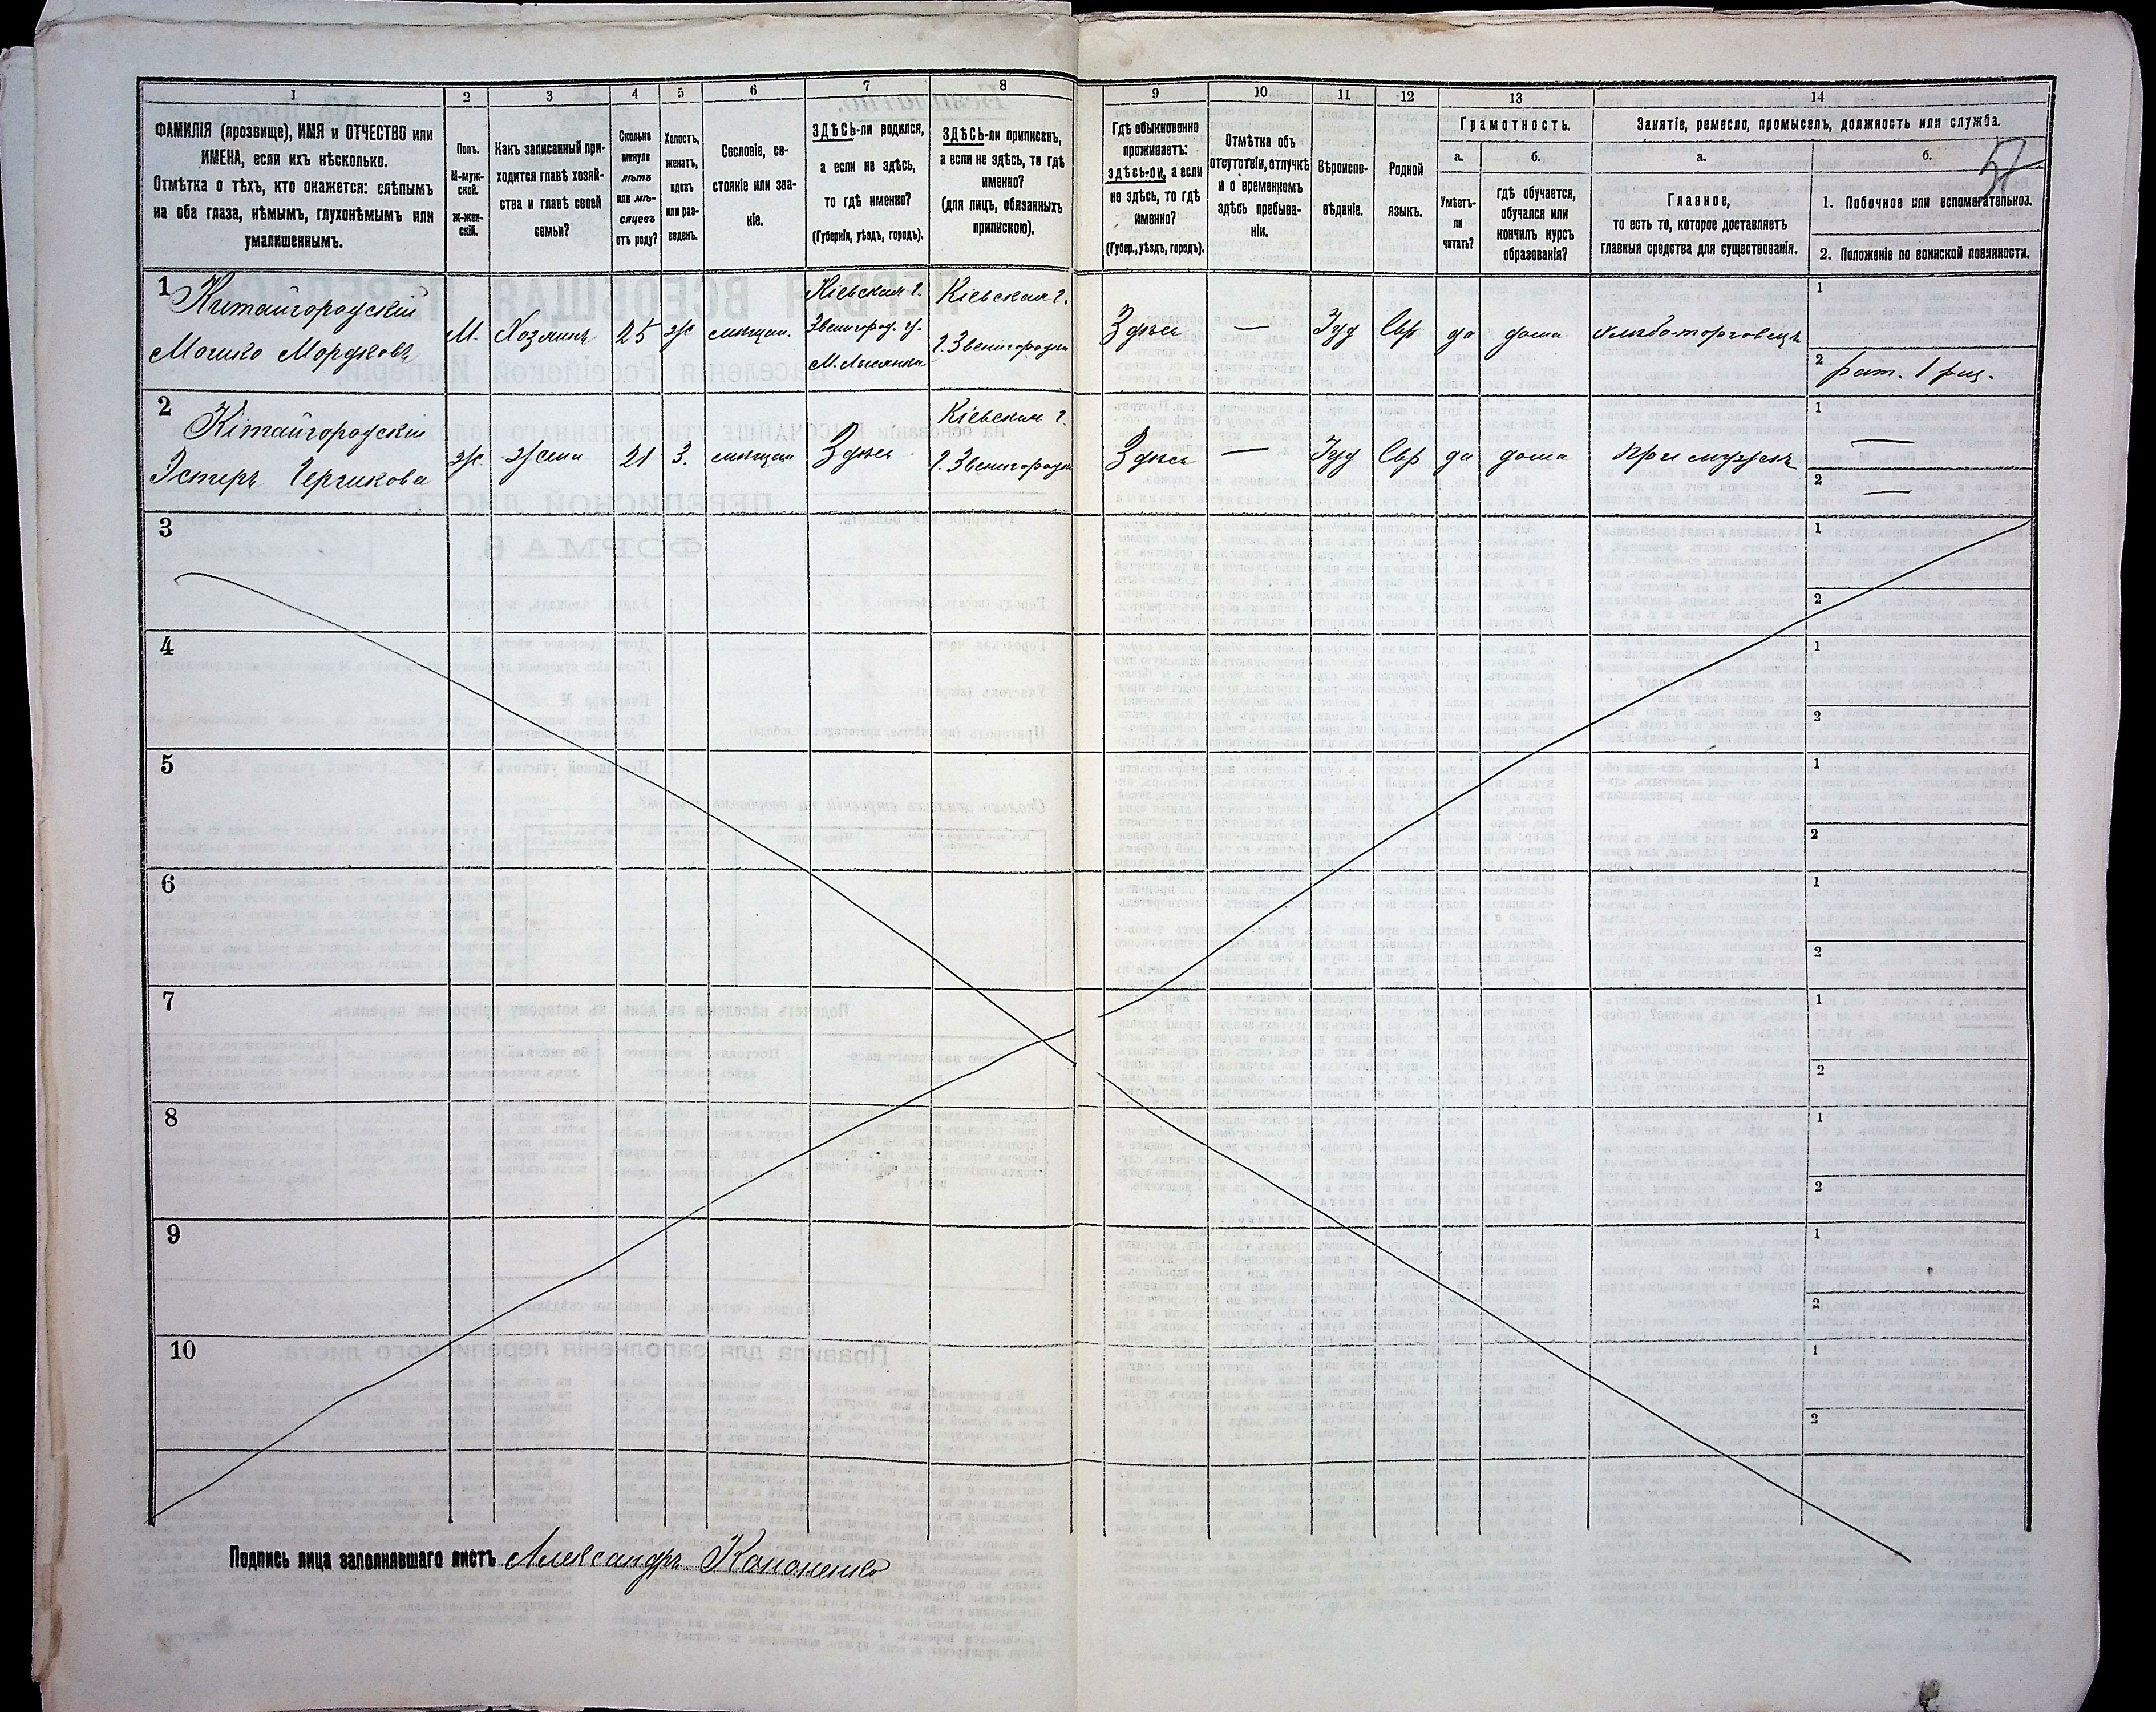 1 2 3 4 5 6 7 8 9 10 11 12 13 14
ФАМИЛІЯ (прозвище), ИМЯ и ОТЧЕСТВО или
ИМЕНА, если ихъ нѣсколько.
Отмѣтка о тѣхъ, кто окажется: слѣпымъ
на оба глаза, нѣмымъ, глухонѣмымъ или
умалишеннымъ.
Полъ.
М-муж-
ской.
Ж-жен-
скій.
Какъ записанный при-
ходится главѣ хозяй-
ства и главѣ своей
семьи?
Сколько
минуло
лѣтъ
или мѣ-
сяцевъ
отъ роду?
Холостъ,
женатъ,
вдовъ
или раз-
веденъ.
Сословіе, со-
стояніе или зва-
ніе.
ЗДѢСЬ-ли родился,
а если не здѣсь,
то гдѣ именно?
(Губернія, уѣздъ, городъ).
ЗДѢСЬ-ли приписанъ,
а если не здѣсь, то гдѣ
именно?
(для лицъ, обязанныхъ
припискою).
Гдѣ обыкновенно
проживаетъ:
здѣсь-ли, а если
не здѣсь, то гдѣ
именно?
(Губер., уѣздъ, городъ).
Отмѣтка объ
отсутствіи, отлучкѣ
и о временномъ
здѣсь пребыва-
ніи.
Вѣроиспо-
вѣданіе.
Родной
языкъ.
Грамотность.
а.
Умѣетъ-
ли
читать?
б.
гдѣ обучается,
обучался или
кончилъ курсъ
образованія?
Занятіе, ремесло, промыселъ, должность или служба.
а.
Главное,
то есть то, которое доставляетъ
главныя средства для существованія.
б.
57
1. Побочное или вспомогательное.
2. Положеніе по воинской повинности.
1 Китайгородскій
Мошко Мордковъ
М. Хозяинъ 25 ж мѣщан.
Кіевская г.
Звенигород. у.
М. Лысянка
Кіевская г.
г. Звенигородка
Здѣсь — Іуд Евр да дома хлѣбо-торговецъ
1
2 рат. 1 раз.
2 Китайгородская
Эстеръ Гершкова
ж жена 21 З. мѣщан Здѣсь
Кіевская г.
г. Звенигородка
Здѣсь — Іуд Евр да дома При мужѣ
1 —
2 —
3 1
2
4 1
2
5 1
2
6 1
2
7 1
2
8 1
2
9 1
2
10 1
2
Подпись лица заполнявшаго листъ Александръ Кононенко